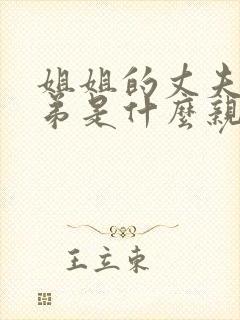 姐姐的丈夫
弟是什麼親
王立東